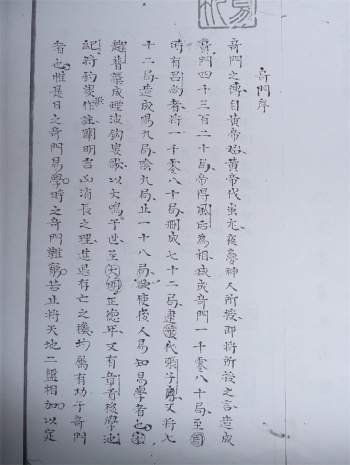 奇門序
奇門之傳自黃帝始黃帝伐蚩尤夜夢神人所授即將所授之言造成
奇門四千三百二十局帝得風后為相裁成奇門一千零八十局至周
時有呂尚者將一千零八十局刪成七十二局逮漢代張子房又將七
十二局造成陽九局陰九局止一十八局誠使後人易知易學者也宋
趙普築成煙波釣叟歌以大鳴于世至大明正德年又有章香後學池
紀將釣叟歌作註闡明吉凶消長之理進退存亡之機均屬有功于奇門
者也惟是日之奇門易學時之奇門難窮若止將天地二盤相加以定